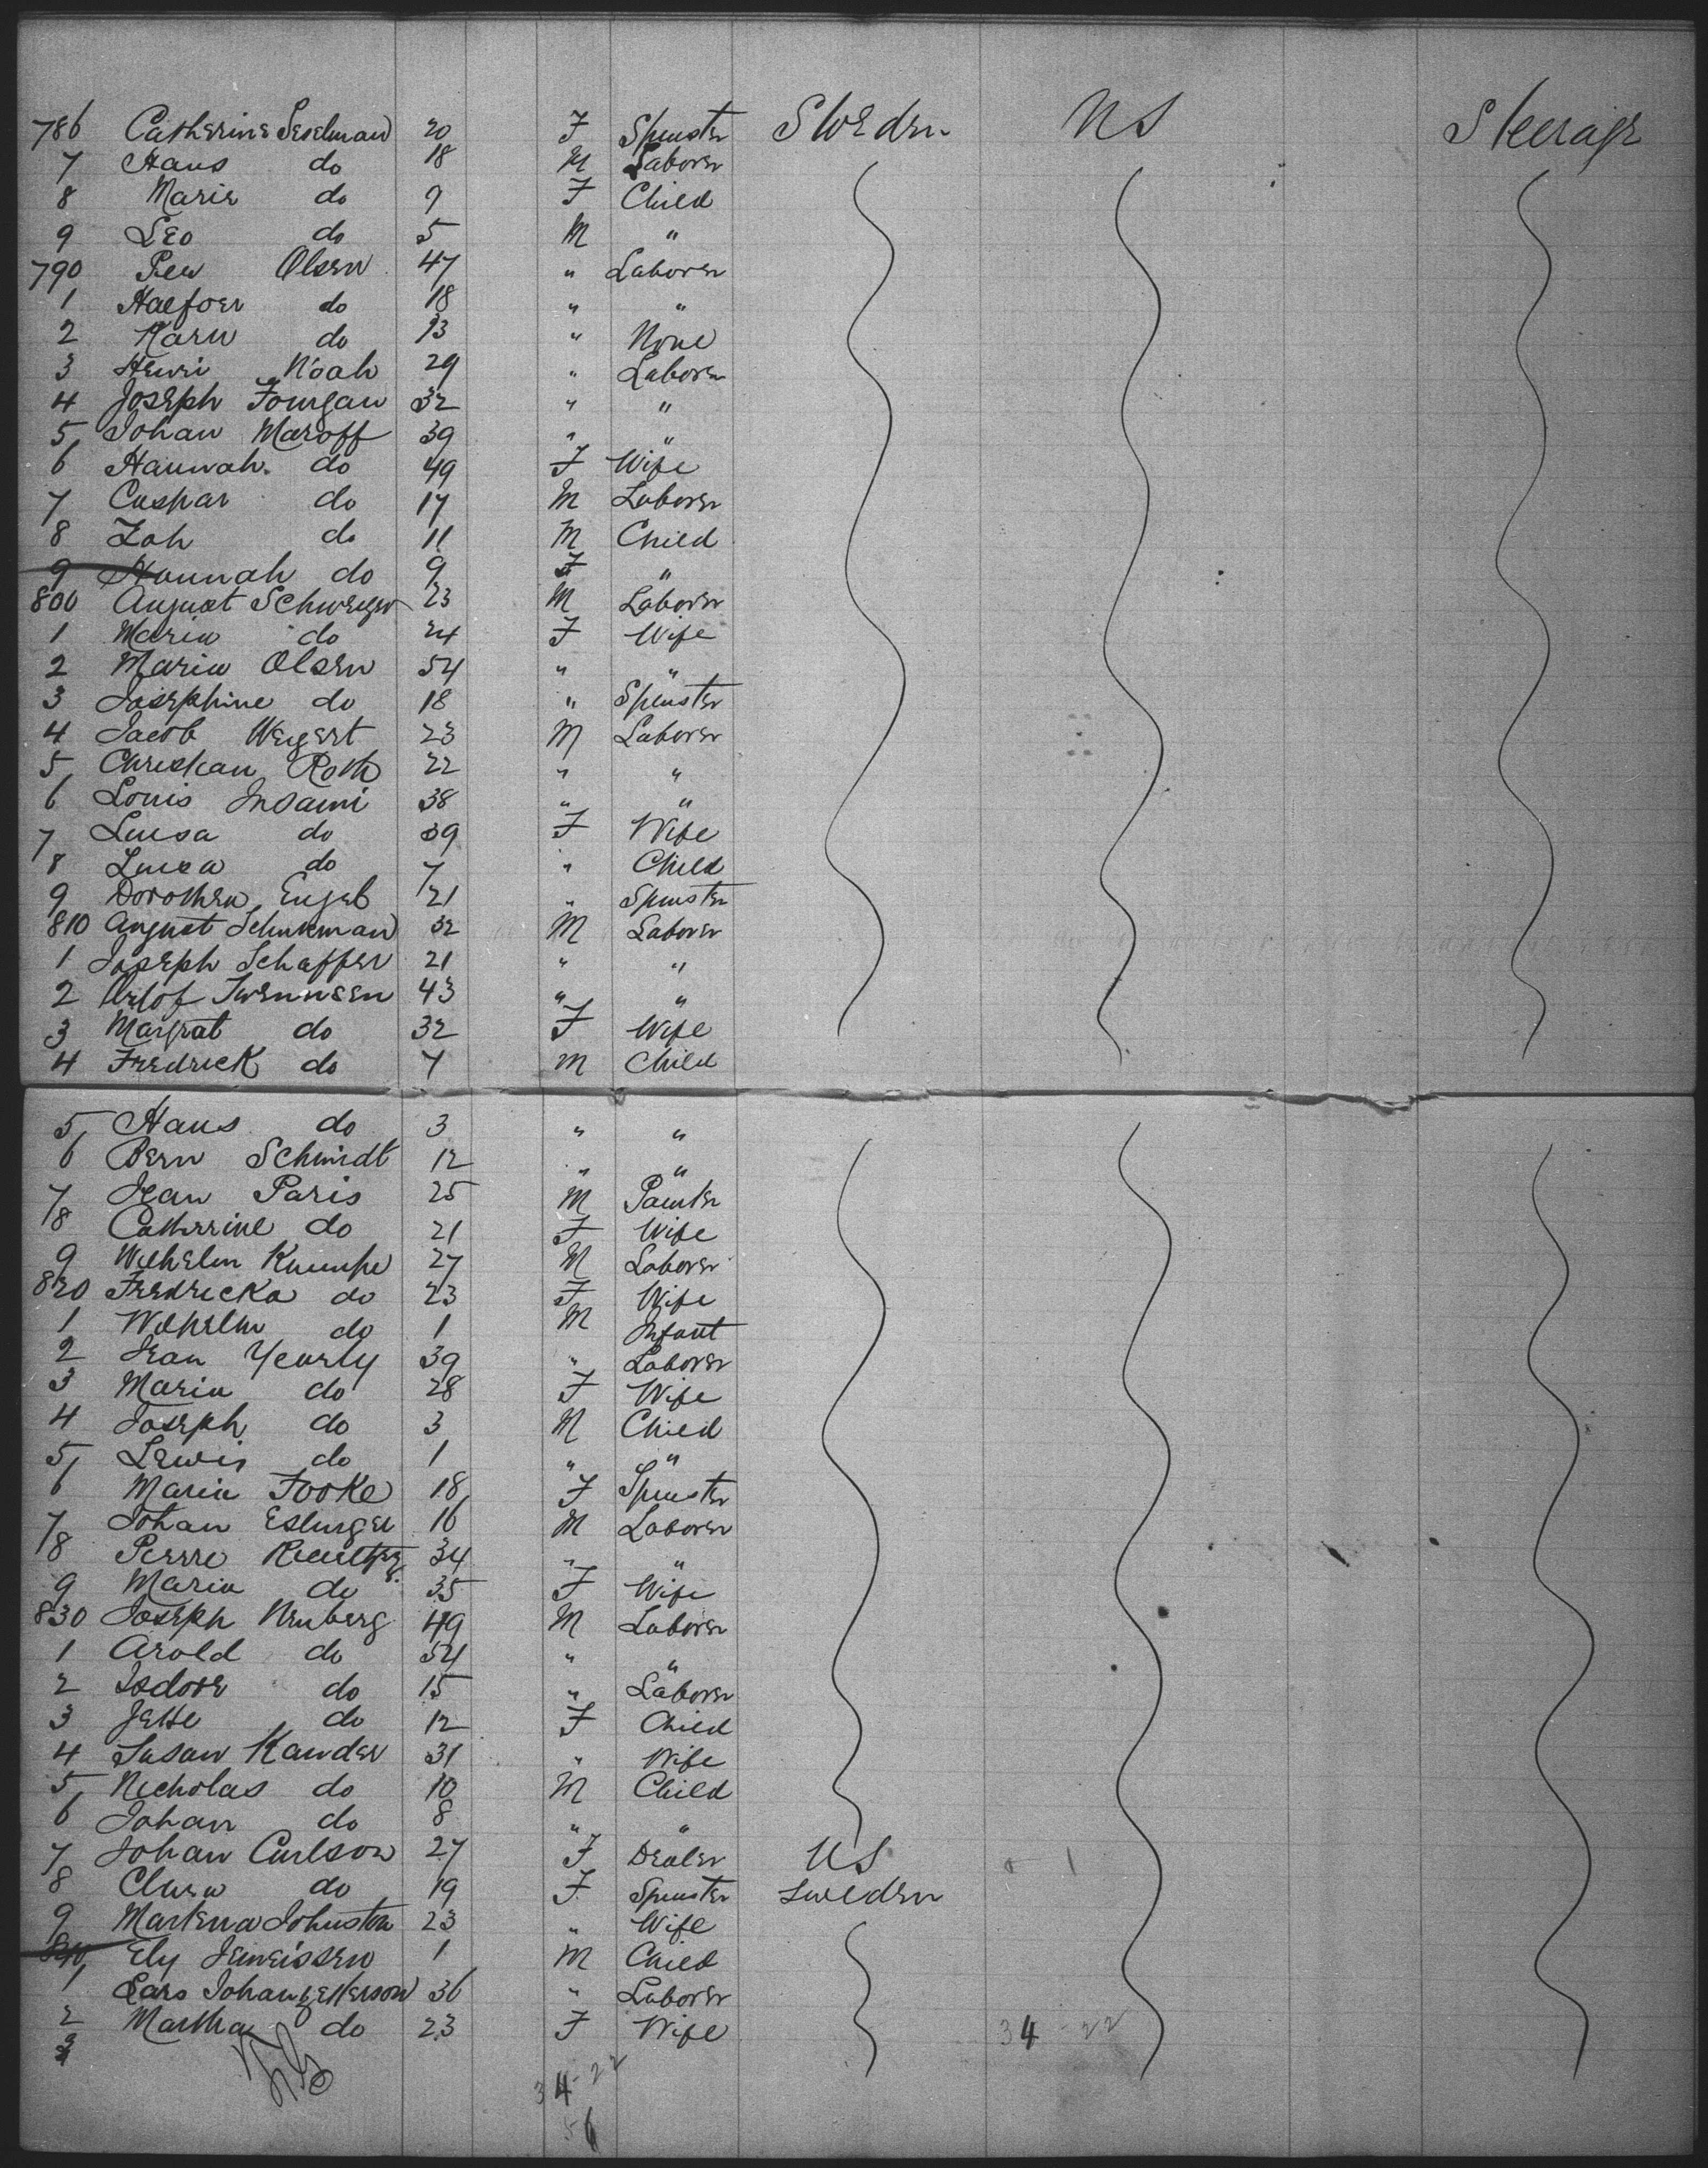 786 Catherine Seselman 20 F Spinster Sweden US Steerage
7 Hans do 18 M Laborer
8 Marie do 9 F Child
9 Leo do 5 M "
790 Olsen 47 " Laborer
1 do 18 " "
2 Karn do 13 " None
3 Henri Noah 29 " Laborer
4 Joseph Fourgan 32 " "
5 Johan Maroff 39 " "
6 Hannah do 49 F Wife
7 Caspar do 17 M Laborer
8 Zoh do 11 M Child
9 Hannah do 9 F "
800 August Schweizer 23 M Laborer
1 Maria do 24 F Wife
2 Maria Olsen 54 " "
3 Josephine do 18 " Spinster
4 Jacob Weyert 23 M Laborer
5 Christian Roth 22 " "
6 Louis Insami 38 " "
7 Luisa do 39 F Wife
8 Luisa do 7 " Child
9 Dorothea Engel 21 " Spinster
810 August Schukman 32 M Laborer
1 Joseph Schaffer 21 " "
2 Orlof Swennsen 43 " "
3 Margrat do 32 F Wife
4 Fredrick do 7 M Child
5 Hans do 3 " "
6 Bern Schmidt 12 " "
7 Jean Paris 25 M Painter
8 Catherine do 21 F Wife
9 Wilhelm Knumpe 27 M Laborer
820 Fredricka do 23 F Wife
1 Wilhelm do 1 M Infant
2 Jean Yeurly 39 " Laborer
3 Maria do 28 F Wife
4 Joseph do 3 M Child
5 Lewis do 1 " "
6 Maria Fooke 18 F Spinster
7 Johan Eslinger 16 M Laborer
8 Pierre 34 " "
9 Maria do 35 F Wife
830 Joseph Neuberg 49 M Laborer
1 Arold do 54 " "
2 Isdore do 15 " Laborer
3 Jette do 12 F Child
4 Susan Kander 31 " Wife
5 Nicholas do 10 M Child
6 Johan do 8 " "
7 Johan Carlson 27 F Dealer US
8 Clara do 19 F Spinster Sweden
9 Martena Johnston 23 " Wife
840 Ely Jeweissen 1 M Child
1 Lars Johan 36 " Laborer
2 Martha do 23 F Wife 34-22
3
34-22
56